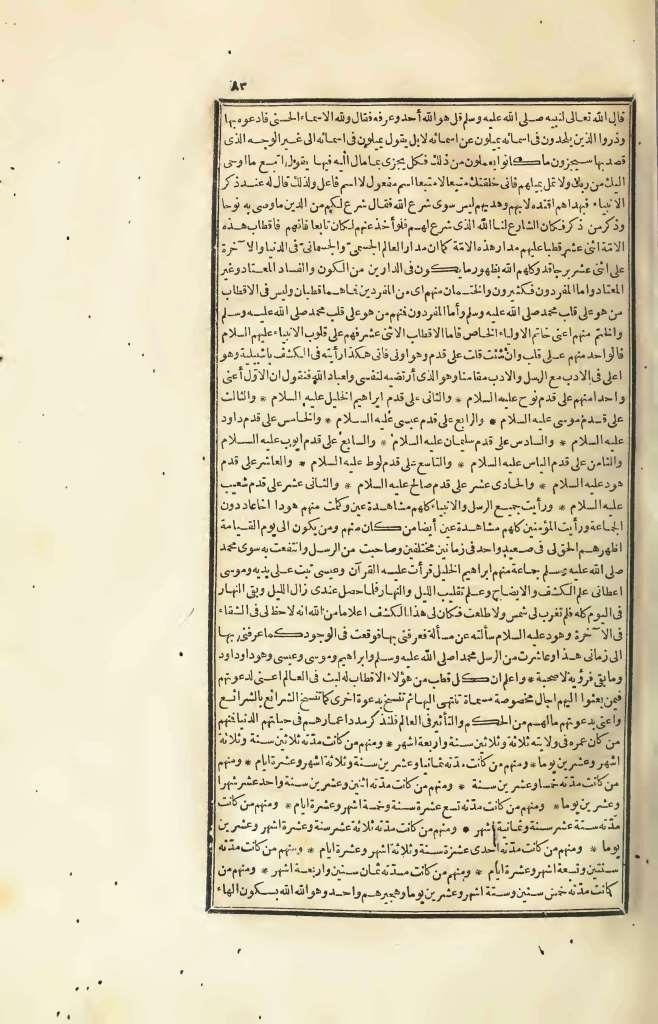 ٨٣
قال الله تعالى لنبيه صلى الله عليه وسلم قل هو الله أحد وعرفه فقال ولله الاسماء الحسنى فادعوه بها
وذروا الذين يلحدون فى اسمائه يميلون عن اسمائه لا بل يقول يميلون فى اسمائه الى غير الوجه الذى
قصد بها سيجزون ما كانوا يعملون من ذلك فكل يجزى بما مال اليه فيها يقول اتبع ما اوحى
اليك من ربك ولا تمل بميلهم فانى خلقتك متبعا لا متبعا اسم مفعول لا اسم فاعل ولذلك قال له عند ذكر
الانبياء فبهداهم اقتده لا بهم وهديهم ليس سوى شرع الله فقال شرع لكم من الدين ما وصى به نوحا
وذكر من ذكر فكان الشارع لنا الله الذى شرع لهم فلو أخذ عنهم لكان تابعا فافهم فاقطاب هذه
الامة اثنى عشر قطبا عليهم مدار هذه الامة كما ان مدار العالم الجسمى والجسمانى فى الدنيا والآخرة
على اثنى عشر برجا قد وكلهم الله بظهور ما يكون فى الدارين من الكون والفساد المعتاد وغير
المعتاد واما المفردون فكثيرون والختمان منهم اى من المفردين فما هما قطبان وليس فى الاقطاب
من هو على قلب محمد صلى الله عليه وسلم وأما المفردون فمنهم من هو على قلب محمد صلى الله عليه وسلم
والختم منهم اعنى خاتم الاولياء الخاص فاما الاقطاب الاثنى عشر فهم على قلوب الانبياء عليهم السلام
فالواحد منهم على قلب وان شئت قلت على قدم وهو اولى فانى هكذا رأيته فى الكشف باشبيلية وهو
اعلى فى الادب مع الرسل والادب مقامنا وهو الذى أرتضيه لنفسى ولعباد الله فنقول ان الاول أعنى
واحدا منهم على قدم نوح عليه السلام * والثانى على قدم ابراهيم الخليل عليه السلام * والثالث
على قدم موسى عليه السلام * والرابع على قدم عيسى عليه السلام * والخامس على قدم داود
عليه السلام * والسادس على قدم سليمان عليه السلام * والسابع على قدم ايوب عليه السلام
والثامن على قدم الياس عليه السلام * والتاسع على قدم لوط عليه السلام * والعاشر على قدم
هود عليه السلام * والحادى عشر على قدم صالح عليه السلام * والثانى عشر على قدم شعيب
عليه السلام * ورأيت جميع الرسل والانبياء كلهم مشاهدة عين وكلمت منهم هودا اخا عاد دون
الجماعة ورأيت المؤمنين كلهم مشاهدة عين أيضا من كان منهم ومن يكون الى يوم القيامة
اظهرهم الحق لى فى صعيد واحد فى زمانين مختلفين وصاحبت من الرسل وانتفعت به سوى محمد
صلى الله عليه وسلم جماعة منهم ابراهيم الخليل قرأت عليه القرآن وعيسى تبت على يديه وموسى
اعطانى علم الكشف والايضاح وعلم تقليب الليل والنهار فلما حصل عندى زال الليل وبقى النهار
فى اليوم كله فلم تغرب لى شمس ولا طلعت فكان لى هذا الكشف اعلاما من الله انه لاحظ لى فى الشقاء
فى الآخرة وهود عليه السلام سألته عن مسألة فعرفنى بها فوقعت فى الوجود كما عرفنى بها
الى زمانى هذا وعاشرت من الرسل محمدا صلى الله عليه وسلم وابراهيم وموسى وعيسى وهودا وداود
وما بقى فرؤية لا صحبة * واعلم ان كل قطب من هؤلاء الاقطاب له لبث فى العالم اعنى لدعوتهم
فيمن بعثوا اليهم اجال مخصوصة مسماة تنتهى اليها ثم تنسخ بدعوة اخرى كما تنسخ الشرائع بالشرائع
واعنى بدعوتهم ما لهم من الحكم والتأثير فى العالم فلنذكر مدد اعمارهم فى حياتهم الدنيا فمنهم
من كان عمره فى ولايته ثلاثة وثلاثين سنة واربعة اشهر * ومنهم من كانت مدته ثلاثين سنة وثلاثة
اشهر وعشرين يوما * ومنهم من كانت مدته ثمانيا وعشرين سنة وثلاثة اشهر وعشرة ايام * ومنهم
من كانت مدته خمسا وعشرين سنة * ومنهم من كانت مدته اثنين وعشرين سنة واحد عشر شهرا
وعشرين يوما * ومنهم من كانت مدته تسع عشرة سنة وخمسة اشهر وعشرة ايام * ومنهم من كانت
مدته ستة عشر سنة وثمانية اشهر * ومنهم من كانت مدته ثلاثة عشر سنة وعشرة اشهر وعشرين
يوما * ومنهم من كانت مدته احدى عشرة سنة وثلاثة اشهر وعشرة ايام * ومنهم من كانت مدته
سنتين وتسعة اشهر وعشرة ايام * ومنهم من كانت مدته ثمان سنين واربعة اشهر * ومنهم من
كانت مدته خمس سنين وستة اشهر وعشرين يوما وهجيرهم واحد وهو الله الله بسكون الهاء